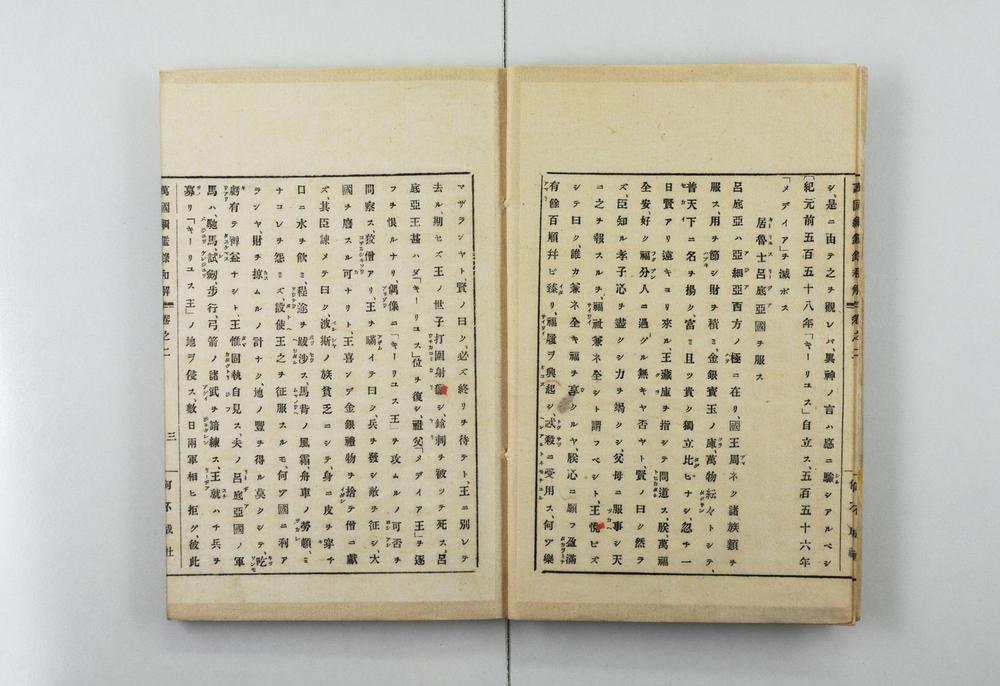 シ、是ニ由テ之チ観レバ異神ノ言ハ感ニ驗シアルベシ
〔紀元前五百五十八年「キーリユス」自立ス、五百五十六年
「メデイア」チ滅ボス
居魯士呂底亞國チ服ス
呂底亞ハ亞細亞西方ノ極ニ在リ、國王周ネク諸族類チ
服ス、用チ節シ財チ積ミ、金銀寶玉ノ庫、萬物紜々トシテ、
普天下ニ名チ揚ク、富ミ且ツ貴ク獨立比ヒナシ、忽チ一
日賢アリ遠キヨリ來ル、王藏庫チ指シテ問道ス、朕萬福
全安、好ク福分人ニ過グル無キヤ否ヤト、賢ノ曰ク然ラ
ズ、臣知ル孝子心チ盡クシ力チ竭クシ父母ニ服事シ天
ニ之チ報スルチ、福祉兼ネ全シト謂フベシト、王悅ビズ
シテ曰ク、誰カ兼ネ全キ福チ享クルヤ、朕心ニ願フ、盈滿
有餘百順并ビ臻リ、福履チ興起シ、弑殺ニ受用ス、何ア樂
マザランヤト、賢ノ曰ク、必ズ終リチ待テト、王ニ別レテ
去ル、期セズ王ノ世子打圍射獵シ、鎗刺チ被ツテ死ス、呂
底亞王甚ハダ「キーリユス」位チ復シ、祖父「メデイア王」チ逐
フチ恨ルナリ、偶像ニ「キーリユス王」チ攻ムルノ可否チ
問察ス、狡僧アリ、王チ瞞イテ曰ク、兵チ發シ敵チ征シ、大
國チ廢スル可ナリト、王喜ンデ金銀禮物チ捨テ僧ニ獻
ズ、其臣諫メテ曰ク、波斯ノ族貧乏ニシテ、身ニ皮チ穿キ
口ニ水チ飲ミ、程途チ跋渉ス、馬背ノ風霜、舟車ノ勞頓、ミ
ナコレチ怨ミズ、設使王之チ征服スルモ、何ア國ニ利ア
ランヤ、財チ掠ムルノ計ナク、地ノ豐チ得ル莫クシテ、吃
虧有テ裨益ナシト、王惟固執自見ス、夫ノ呂底亞國ノ軍
馬ハ、馳馬、試劔、步行、弓、箭ノ諸武チ諳練ス、王就ハチ兵チ
募リ「キーリユス王」ノ地チ侵ス、數日兩軍相ヒ拒グ、彼此
萬國綱鑑錄和解 卷之二 三